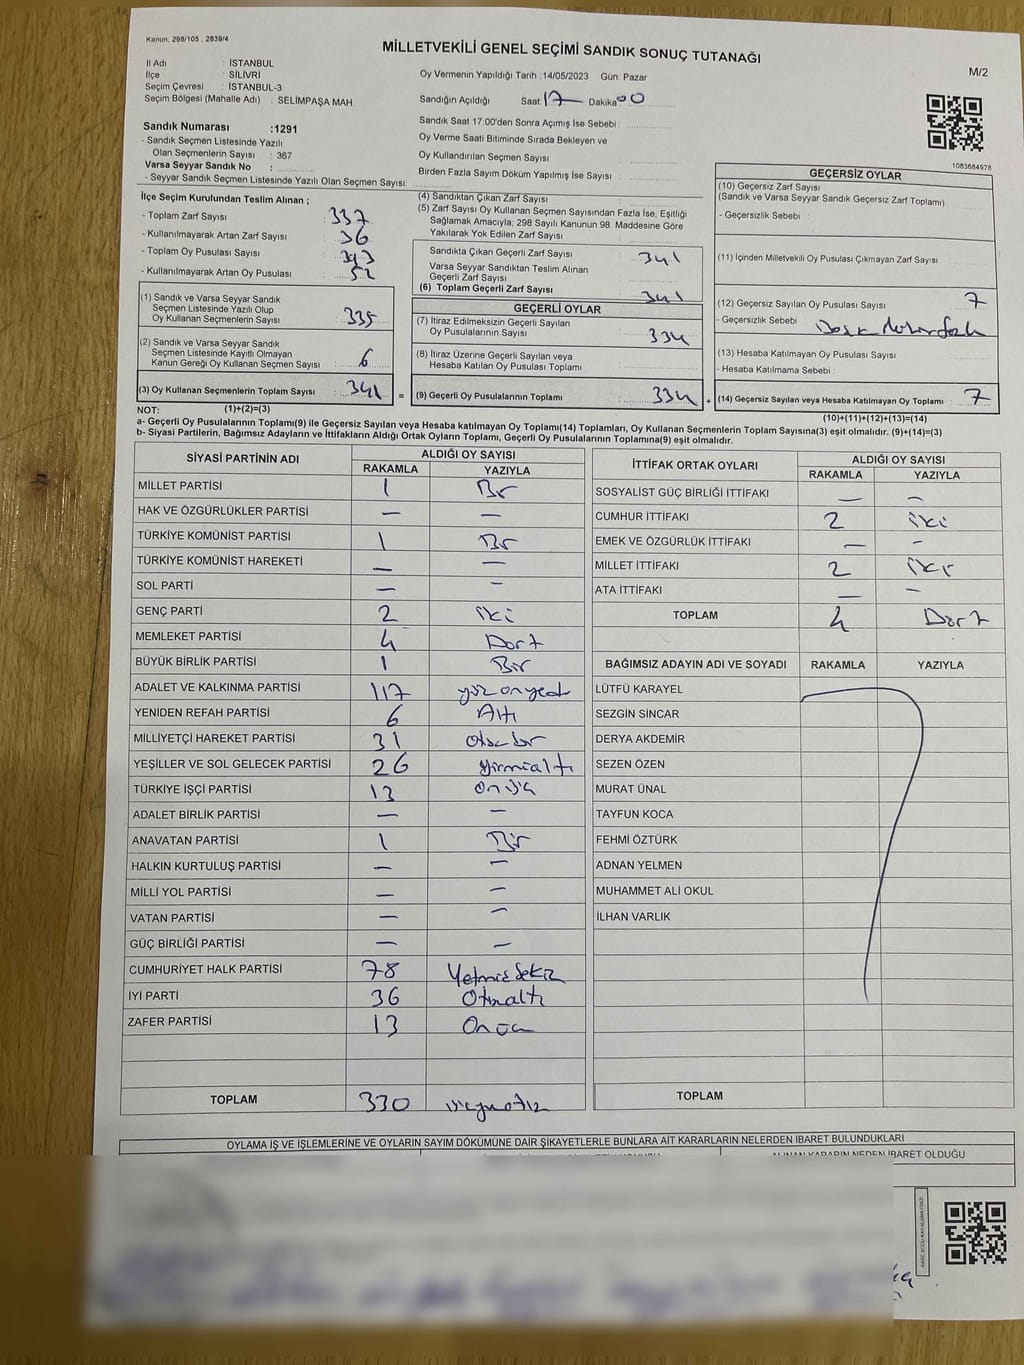 Kanun. 298/105 , 2839/4
MİLLETVEKİLİ GENEL SEÇİMİ SANDIK SONUÇ TUTANAĞI
M/2
İl Adı : İSTANBUL
İlçe : SİLİVRİ
Seçim Çevresi : İSTANBUL-3
Seçim Bölgesi (Mahalle Adı) : SELİMPAŞA MAH.
Oy Vermenin Yapıldığı Tarih : 14/05/2023 Gün: Pazar
Sandığın Açıldığı Saat: 17 Dakika: 00
Sandık Saat 17:00'den Sonra Açımış İse Sebebi :
Oy Verme Saati Bitiminde Sırada Bekleyen ve
Oy Kullandırılan Seçmen Sayısı :
Birden Fazla Sayım Döküm Yapılmış İse Sayısı :
Sandık Numarası :1291
- Sandık Seçmen Listesinde Yazılı
Olan Seçmenlerin Sayısı : 367
Varsa Seyyar Sandık No :
- Seyyar Sandık Seçmen Listesinde Yazılı Olan Seçmen Sayısı:
1083684978
İlçe Seçim Kurulundan Teslim Alınan ;
- Toplam Zarf Sayısı : 337
- Kullanılmayarak Artan Zarf Sayısı : 36
- Toplam Oy Pusulası Sayısı : 393
- Kullanılmayarak Artan Oy Pusulası : 52
(1) Sandık ve Varsa Seyyar Sandık
Seçmen Listesinde Yazılı Olup
Oy Kullanan Seçmenlerin Sayısı : 335
(2) Sandık ve Varsa Seyyar Sandık
Seçmen Listesinde Kayıtlı Olmayan
Kanun Gereği Oy Kullanan Seçmen Sayısı : 6
(3) Oy Kullanan Seçmenlerin Toplam Sayısı : 341 =
(4) Sandıktan Çıkan Zarf Sayısı :
(5) Zarf Sayısı Oy Kullanan Seçmen Sayısından Fazla İse, Eşitliği
Sağlamak Amacıyla; 298 Sayılı Kanunun 98. Maddesine Göre
Yakılarak Yok Edilen Zarf Sayısı :
Sandıkta Çıkan Geçerli Zarf Sayısı : 341
Varsa Seyyar Sandıktan Teslim Alınan
Geçerli Zarf Sayısı :
(6) Toplam Geçerli Zarf Sayısı : 341
GEÇERLİ OYLAR
(7) İtiraz Edilmeksizin Geçerli Sayılan
Oy Pusulalarının Sayısı : 334
(8) İtiraz Üzerine Geçerli Sayılan veya
Hesaba Katılan Oy Pusulası Toplamı :
(9) Geçerli Oy Pusulalarının Toplamı : 334 +
GEÇERSİZ OYLAR
(10) Geçersiz Zarf Sayısı :
(Sandık ve Varsa Seyyar Sandık Geçersiz Zarf Toplamı)
- Geçersizlik Sebebi :
(11) İçinden Milletvekili Oy Pusulası Çıkmayan Zarf Sayısı :
(12) Geçersiz Sayılan Oy Pusulası Sayısı : 7
- Geçersizlik Sebebi :
(13) Hesaba Katılmayan Oy Pusulası Sayısı :
- Hesaba Katılmama Sebebi :
(14) Geçersiz Sayılan veya Hesaba Katılmayan Oy Toplamı : 7
NOT: (1)+(2)=(3) (10)+(11)+(12)+(13)=(14)
a- Geçerli Oy Pusulalarının Toplamı(9) ile Geçersiz Sayılan veya Hesaba Katılmayan oy Toplamı(14) Toplamları, Oy Kullanan Seçmenlerin Toplam Sayısına(3) eşit olmalıdır. (9)+(14)=(3)
b- Siyasi Partilerin, Bağımsız Adayların ve İttifakların Aldığı Ortak Oyların Toplamı, Geçerli Oy Pusulalarının Toplamına(9) eşit olmalıdır.
SİYASİ PARTİNİN ADI ALDIĞI OY SAYISI
RAKAMLA YAZIYLA
MİLLET PARTİSİ 1 Bir
HAK VE ÖZGÜRLÜKLER PARTİSİ — —
TÜRKİYE KOMÜNİST PARTİSİ 1 Bir
TÜRKİYE KOMÜNİST HAREKETİ — —
SOL PARTİ — —
GENÇ PARTİ 2 iki
MEMLEKET PARTİSİ 4 Dört
BÜYÜK BİRLİK PARTİSİ 1 Bir
ADALET VE KALKINMA PARTİSİ 117 yüz onyedi
YENİDEN REFAH PARTİSİ 6 Altı
MİLLİYETÇİ HAREKET PARTİSİ 31 otuzbir
YEŞİLLER VE SOL GELECEK PARTİSİ 26 yirmialtı
TÜRKİYE İŞÇİ PARTİSİ 13 onüç
ADALET BİRLİK PARTİSİ — —
ANAVATAN PARTİSİ 1 Bir
HALKIN KURTULUŞ PARTİSİ — —
MİLLİ YOL PARTİSİ — —
VATAN PARTİSİ — —
GÜÇ BİRLİĞİ PARTİSİ — —
CUMHURİYET HALK PARTİSİ 78 Yetmiş Sekiz
İYİ PARTİ 36 Otuzaltı
ZAFER PARTİSİ 13 Onüç
TOPLAM 330 üçyüzotuz
İTTİFAK ORTAK OYLARI ALDIĞI OY SAYISI
RAKAMLA YAZIYLA
SOSYALİST GÜÇ BİRLİĞİ İTTİFAKI — —
CUMHUR İTTİFAKI 2 iki
EMEK VE ÖZGÜRLÜK İTTİFAKI — —
MİLLET İTTİFAKI 2 iki
ATA İTTİFAKI — —
TOPLAM 4 Dört
BAĞIMSIZ ADAYIN ADI VE SOYADI RAKAMLA YAZIYLA
LÜTFÜ KARAYEL
SEZGİN SİNCAR
DERYA AKDEMİR
SEZEN ÖZEN
MURAT ÜNAL
TAYFUN KOCA
FEHMİ ÖZTÜRK
ADNAN YELMEN
MUHAMMET ALİ OKUL
İLHAN VARLIK
TOPLAM
OYLAMA İŞ VE İŞLEMLERİNE VE OYLARIN SAYIM DÖKÜMÜNE DAİR ŞİKAYETLERLE BUNLARA AİT KARARLARIN NELERDEN İBARET BULUNDUKLARI
ALINAN KARARIN NEDEN İBARET OLDUĞU